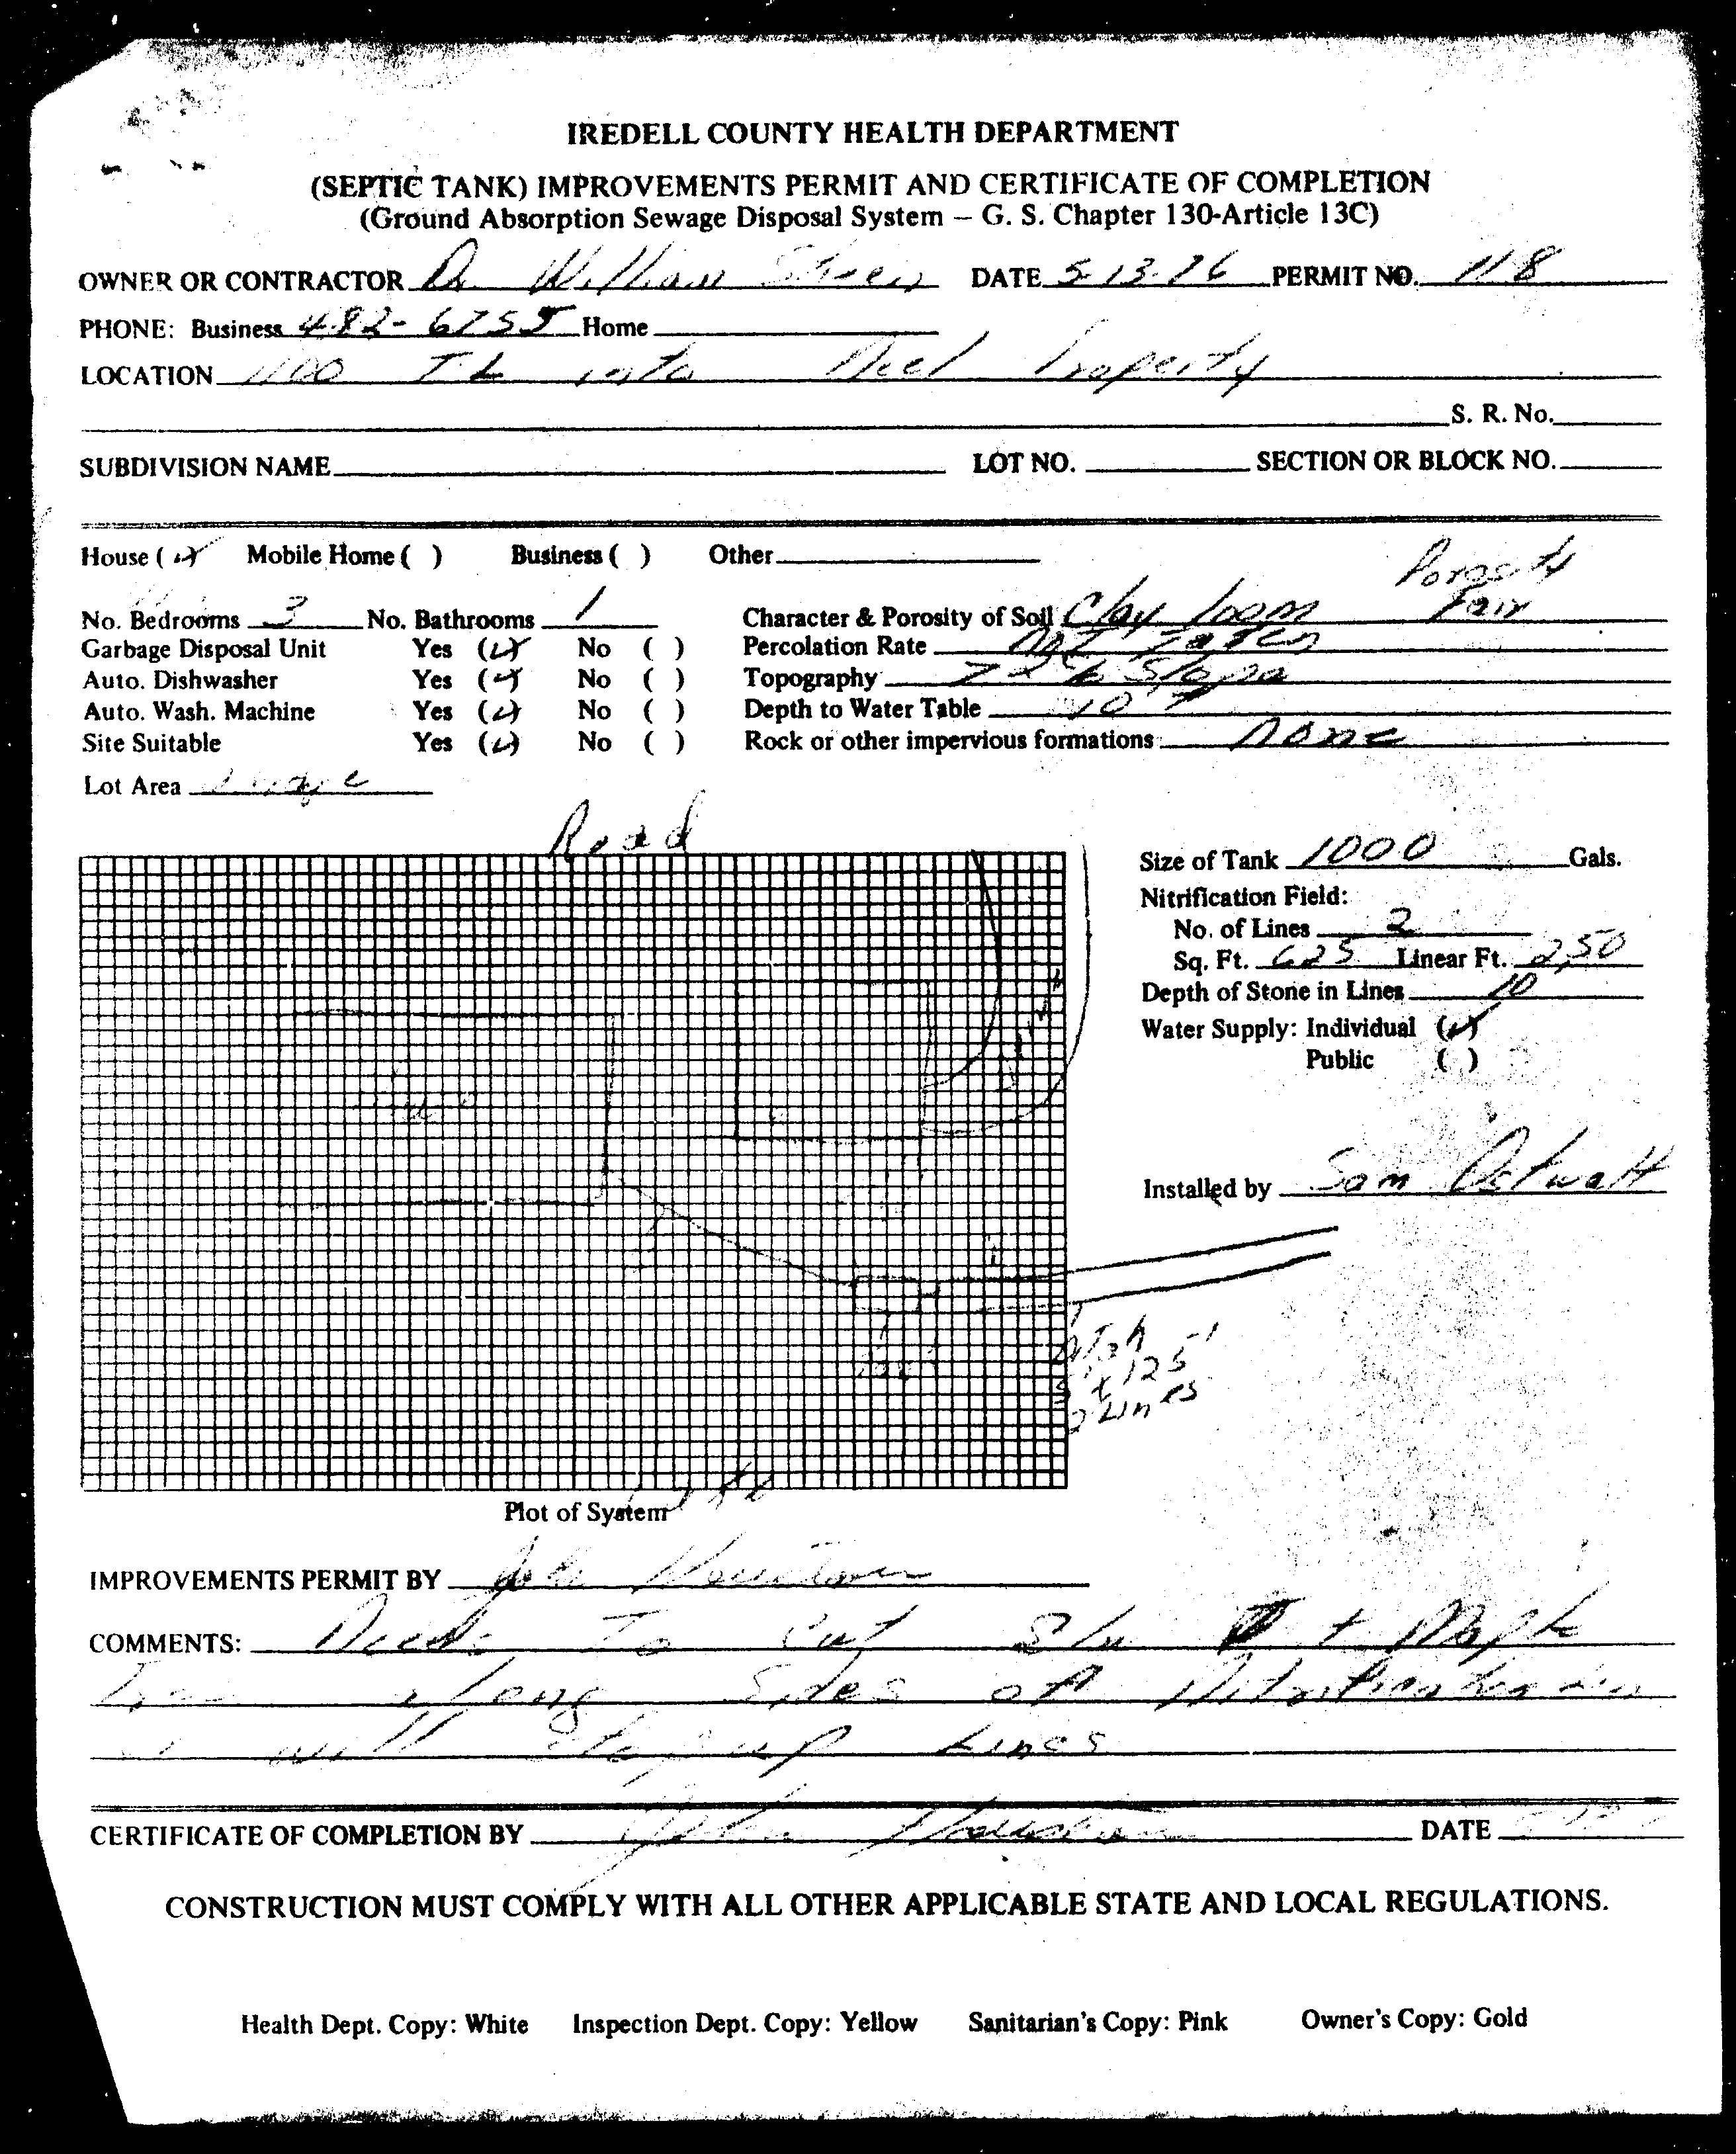 IREDELL COUNTY HEALTH DEPARTMENT
(SEPTIC TANK) IMPROVEMENTS PERMIT AND CERTIFICATE OF COMPLETION
(Ground Absorption Sewage Disposal System – G. S. Chapter 130-Article 13C)
OWNER OR CONTRACTOR Dr William DATE 5-13-76 PERMIT NO. 118
PHONE: Business 482-6755 Home
LOCATION 1100 T L into Property
S. R. No.
SUBDIVISION NAME LOT NO. SECTION OR BLOCK NO.
House (✓) Mobile Home ( ) Business ( ) Other
Porosity
No. Bedrooms 3 No. Bathrooms 1 Character & Porosity of Soil Clay loam Fair
Garbage Disposal Unit Yes (✓) No ( ) Percolation Rate not Taken
Auto. Dishwasher Yes (✓) No ( ) Topography Slope
Auto. Wash. Machine Yes (✓) No ( ) Depth to Water Table 10
Site Suitable Yes (✓) No ( ) Rock or other impervious formations: none
Lot Area Large
Road
Size of Tank 1000 Gals.
Nitrification Field:
No. of Lines 2
Sq. Ft. 625 Linear Ft. 250
Depth of Stone in Lines 10
Water Supply: Individual (✓)
Public ( )
Installed by Sam Ostwalt
125
2 Lines
Plot of System
IMPROVEMENTS PERMIT BY John
COMMENTS: Need To Cut + Maple
along Sides of
will Stop up Lines
CERTIFICATE OF COMPLETION BY John DATE
CONSTRUCTION MUST COMPLY WITH ALL OTHER APPLICABLE STATE AND LOCAL REGULATIONS.
Health Dept. Copy: White Inspection Dept. Copy: Yellow Sanitarian's Copy: Pink Owner's Copy: Gold